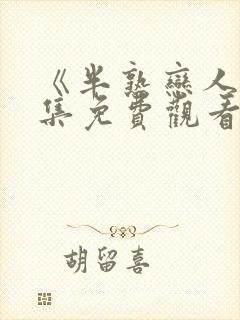 《半熟戀人
集免費觀看
胡留喜